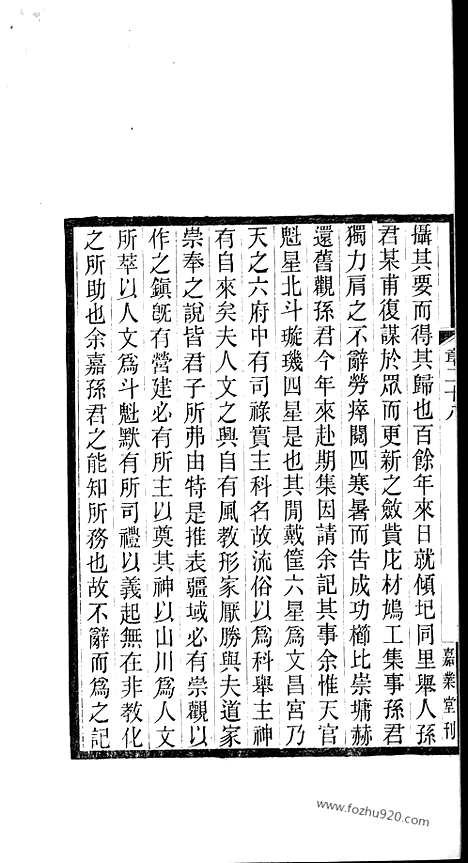 章二十八
嘉業堂刊
攝其要而得其歸也百餘年來日就傾圮同里舉人孫
君某甫復謀於眾而更新之斂貲庀材鳩工集事孫君
獨力肩之不辭勞瘁閱四寒暑而告成功櫛比崇墉赫
還舊觀孫君今年來赴期集因請余記其事余惟天官
魁星北斗璇璣四星是也其閒戴筐六星爲文昌宮乃
天之六府中有司祿實主科名故流俗以爲科舉主神
有自來矣夫人文之興自有風敎形家厭勝與夫道家
崇奉之說皆君子所弗由特是推表疆域必有崇觀以
作之鎭旣有營建必有所主以奠其神以山川爲人文
所萃以人文爲斗魁默有所司禮以義起無在非敎化
之所助也余嘉孫君之能知所務也故不辭而爲之記
www.fozhu920.com